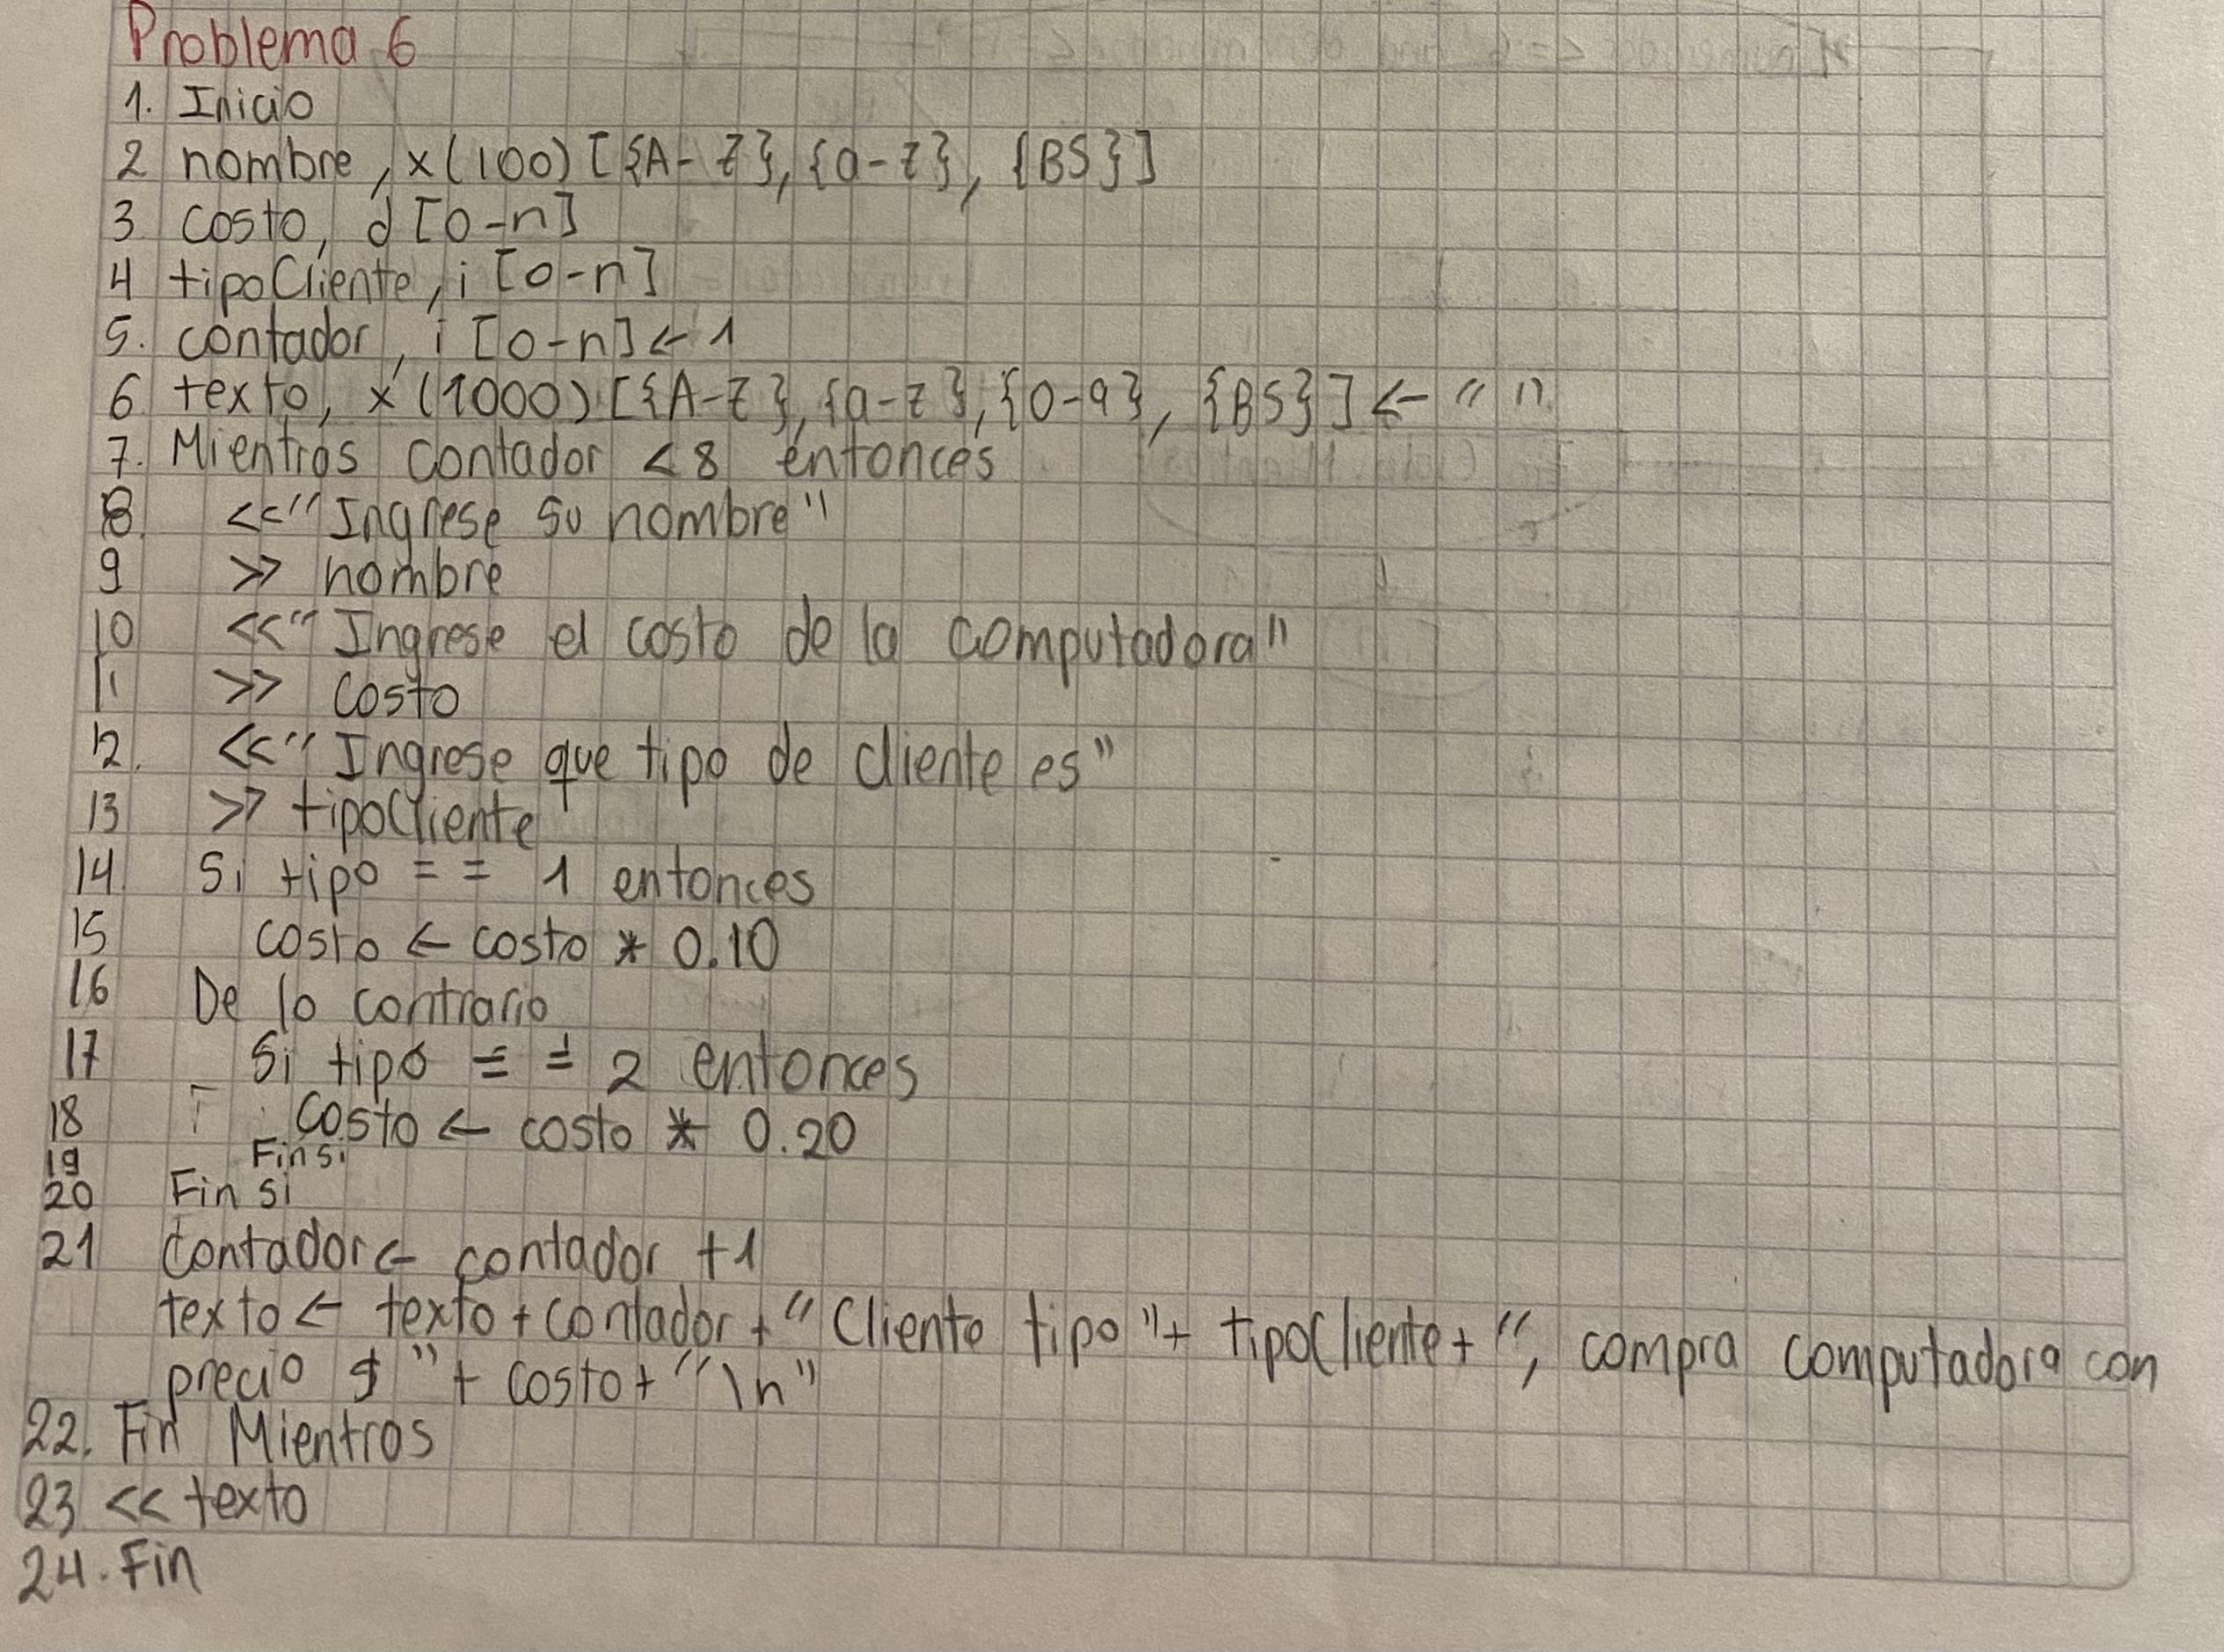 Problema 6
1. Inicio
2 nombre, x(100) [{A-Z}, {a-z}, {BS}]
3 costo, d [0-n]
4 tipoCliente, i [0-n]
5. contador, i [0-n] ← 1
6. texto, x (1000) [{A-Z}, {a-z}, {0-9}, {BS}] ← " "
7. Mientras contador <8 entonces
8. <<"Ingrese su nombre"
9 >> nombre
10 <<"Ingrese el costo de la computadora"
11 >> costo
12. <<"Ingrese que tipo de cliente es"
13 >> tipoCliente
14 Si tipo == 1 entonces
15 costo ← costo * 0.10
16 De lo contrario
17 Si tipo == 2 entonces
18 costo ← costo * 0.20
19 Fin si
20 Fin si
21 contador ← contador +1
texto ← texto + contador + "Cliente tipo "+ tipoCliente + ", compra computadora con
precio $ "+ costo + "\n"
22. Fin Mientras
23 << texto
24. Fin